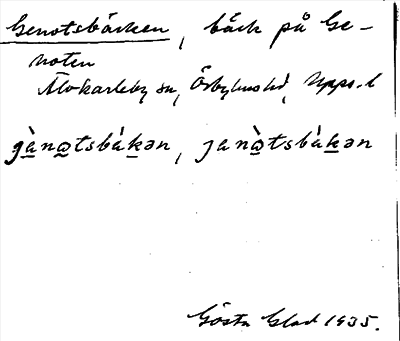 Genotsbäcken, bäck på Ge-
noten
Älvkarleby sn, Örbyhus hd, Upps. l
gàna̲tsbákən, janàtsbákən
Gösta Glad 1935.